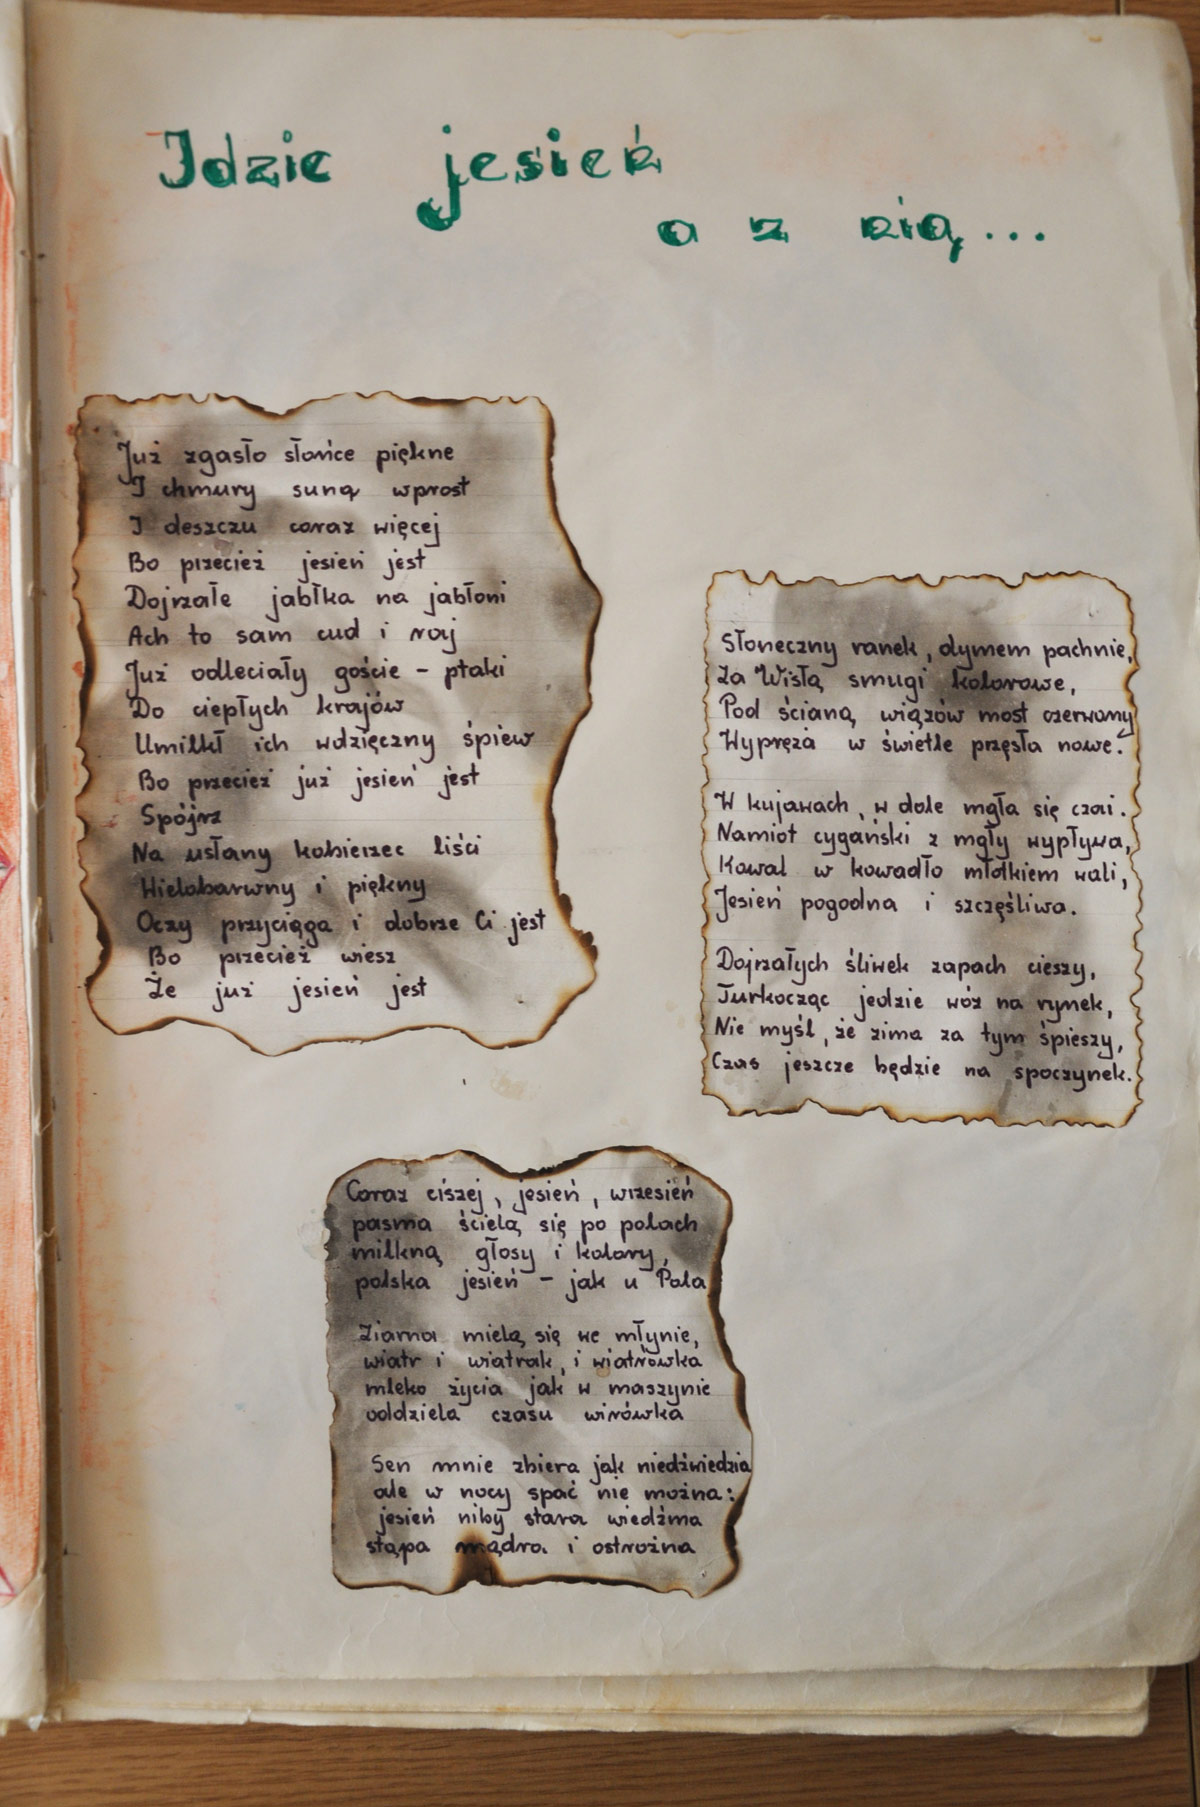 Idzie jesień
a z nią...
Już zgasło słońce piękne
I chmury suną wprost
I deszczu coraz więcej
Bo przecież jesień jest
Dojrzałe jabłka na jabłoni
Ach to sam cud i raj
Już odleciały goście - ptaki
Do ciepłych krajów
Umilkł ich wdzięczny śpiew
Bo przecież już jesień jest
Spójrz
Na usłany kobierzec liści
Wielobarwny i piękny
Oczy przyciąga i dobrze Ci jest
Bo przecież wiesz
Że już jesień jest
Słoneczny ranek, dymem pachnie,
Za Wisłą smugi kolorowe,
Pod ścianą wiązów most czerwony
Wypręża w świetle przęsła nowe.
W kujawach, w dole mgła się czai.
Namiot cygański z mgły wypływa,
Kowal w kowadło młotkiem wali,
Jesień pogodna i szczęśliwa.
Dojrzałych śliwek zapach cieszy,
Turkocząc jedzie wóz na rynek,
Nie myśl, że zima za tym śpieszy,
Czas jeszcze będzie na spoczynek.
Coraz ciszej, jesień, wrzesień
pasma ścielą się po polach
milkną głosy i kolory,
polska jesień - jak u Pola
Ziarna mielą się we młynie,
wiatr i wiatrak, i wiatrówka
mleko życia jak w maszynie
oddziela czasu wirówka
Sen mnie zbiera jak niedźwiedzia
ale w nocy spać nie można:
jesień niby stara wiedźma
stąpa mądra i ostrożna